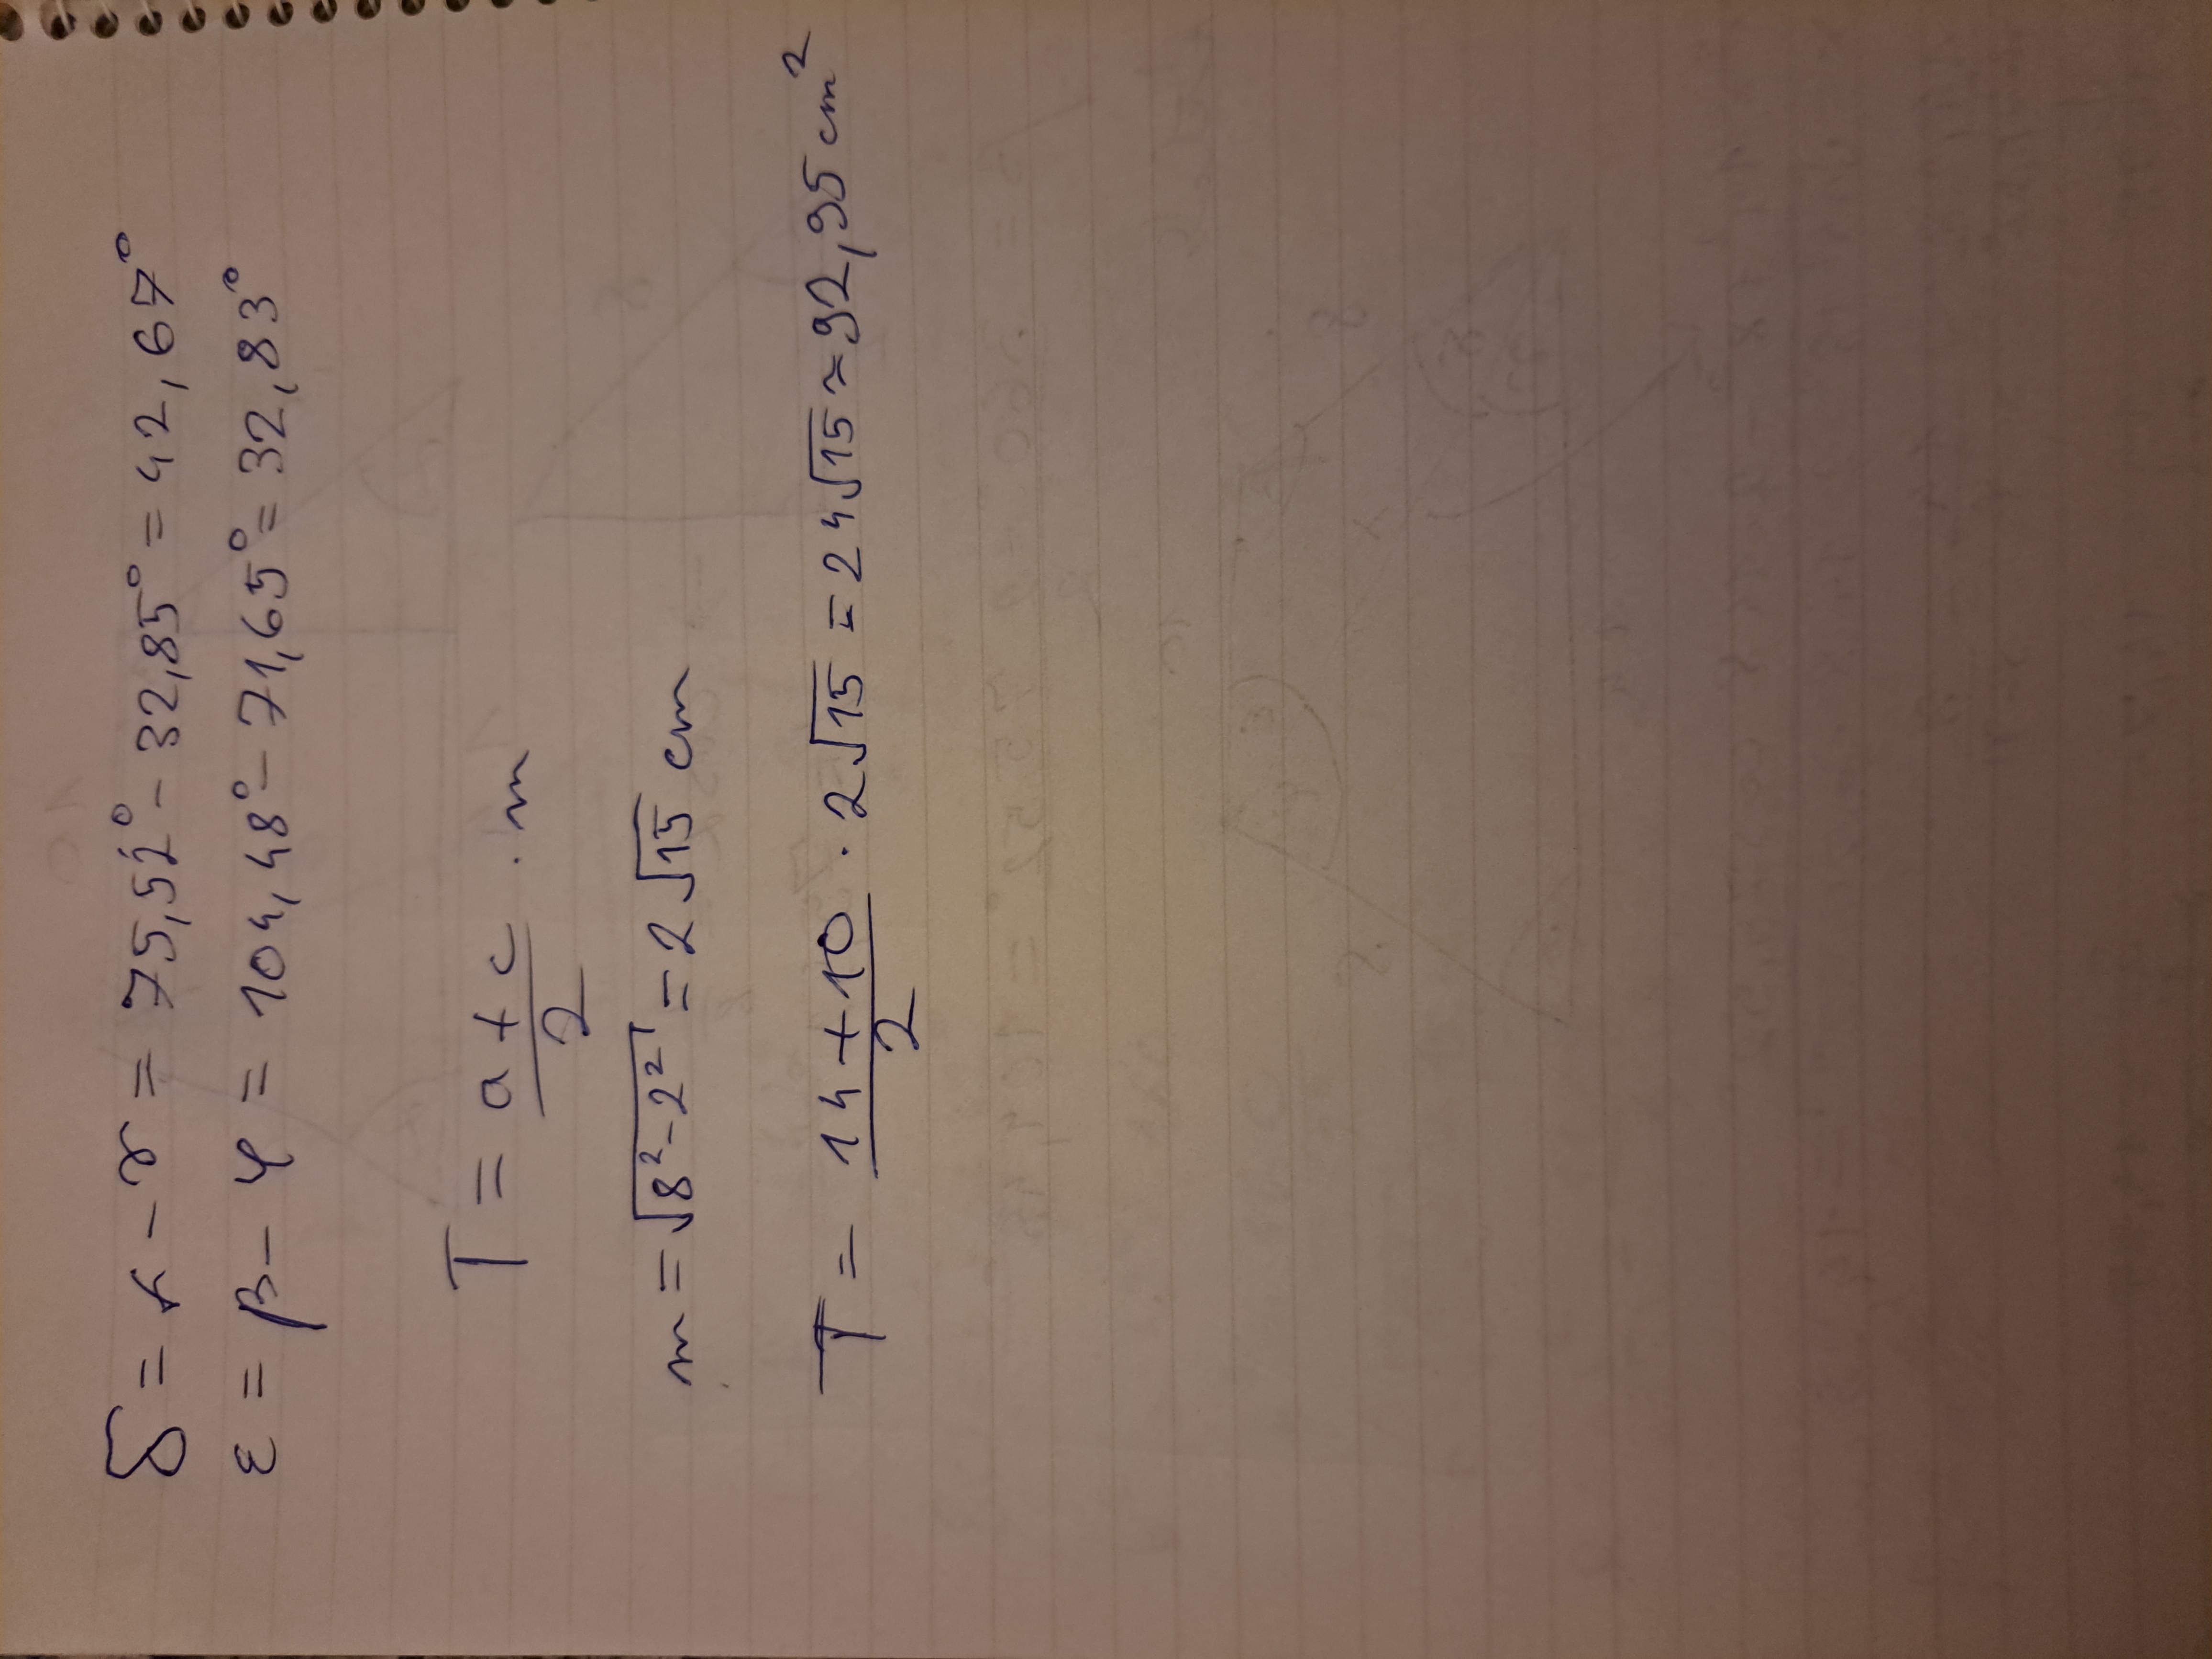 δ = α - γ = 75,52° - 32,85° = 42,67°
ε = β - φ = 104,48° - 71,65° = 32,83°
T = a+c/2 · m
m = √8²-2² = 2√15 cm
T = 14+10/2 · 2√15 = 24√15 ≈ 92,95 cm²